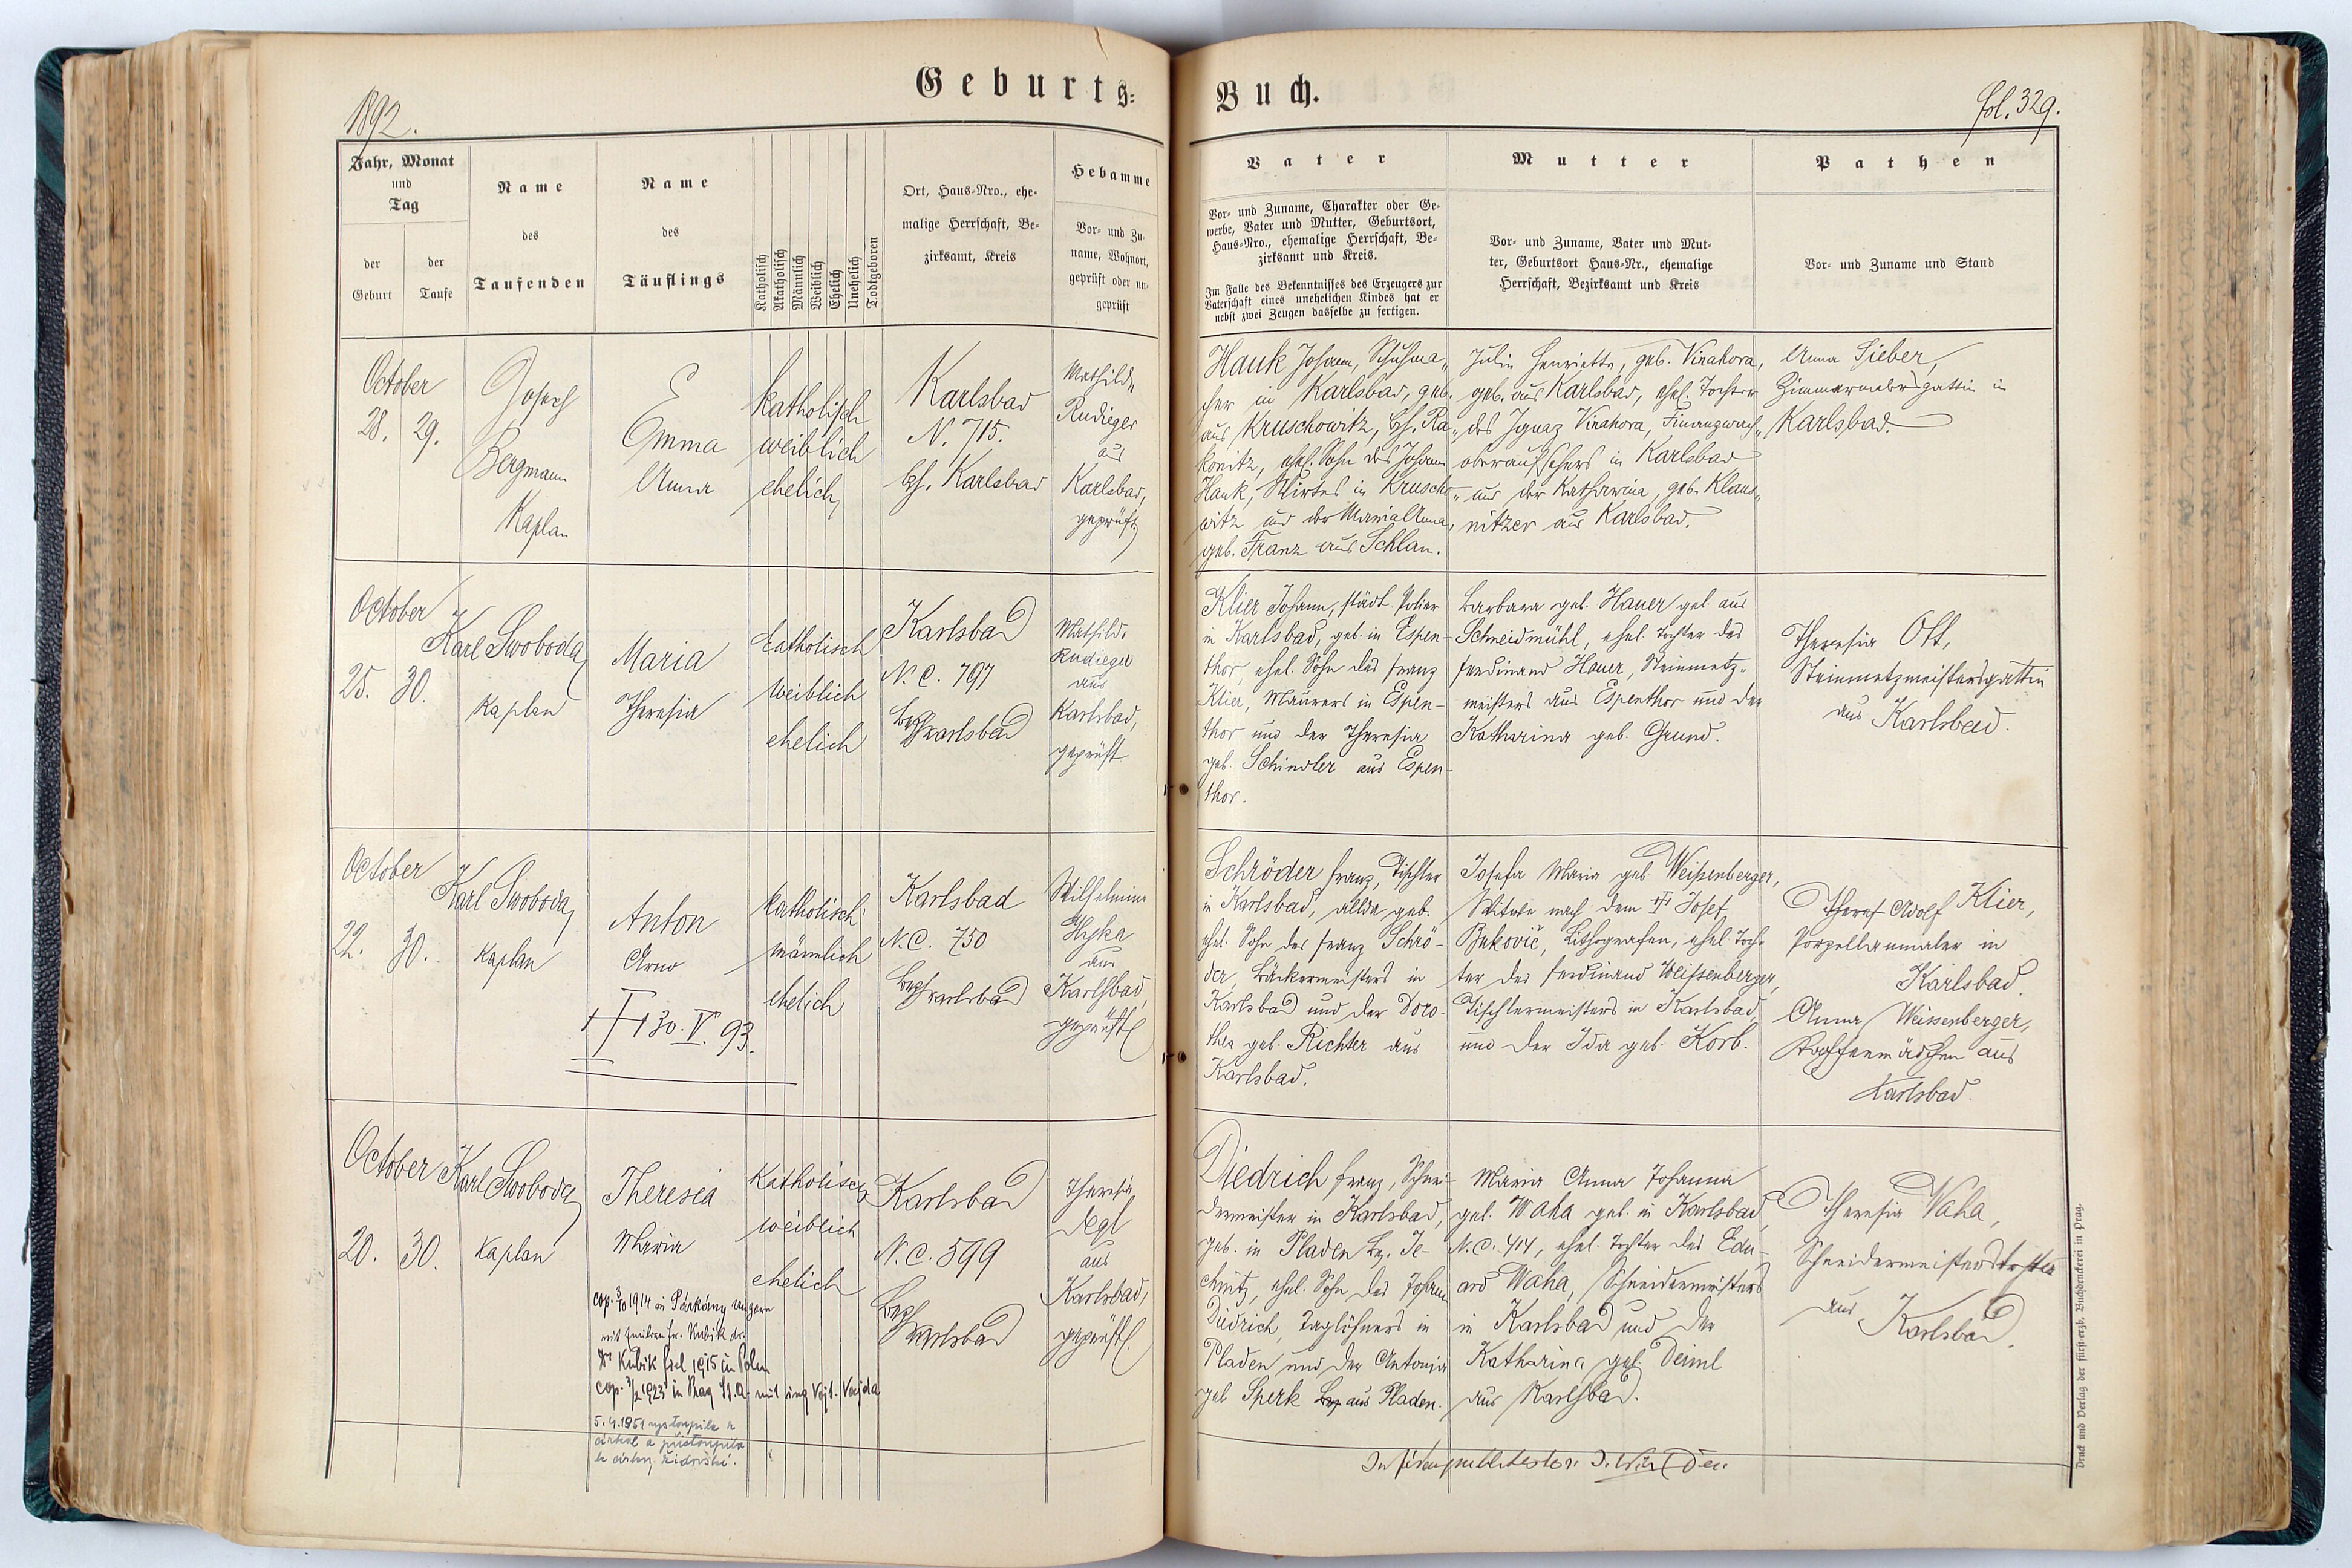 1892.
Geburts-
Jahr, Monat
und
Tag
der
Geburt
der
Taufe
Name
des
Taufenden
Name
des
Täuflings
Katholisch
Akatholisch
Männlich
Weiblich
Ehelich
Unehelich
Todtgeboren
Ort, Haus-Nro., ehe-
malige Herrschaft, Be-
zirksamt, Kreis
Hebamme
Vor- und Zu-
name, Wohnort,
geprüft oder un-
geprüft
October
28. 29.
Josef
Bergmann
Kaplan
Emma
Anna
katholisch
weiblich
ehelich
Karlsbad
N. 715.
Bh. Karlsbad
Mathilde
Rudieger
aus
Karlsbad,
geprüft
October
25. 30.
Karl Swoboda
Kaplan
Maria
Theresia
katholisch
weiblich
ehelich
Karlsbad
N. C. 797
Karlsbad
Mathilde
Rudieger
aus
Karlsbad,
geprüft
October
22. 30.
Karl Swoboda,
Kaplan
Anton
Arno
30. V. 93.
katholisch
männlich
ehelich
Karlsbad
N. C. 750
Karlsbad
Wilhelmine
Hyka
aus
Karlsbad,
geprüft
October
20. 30.
Karl Swoboda
Kaplan
Theresia
Maria
cop. 3/10 1914 in Párkány Ungarn
mit Fr. Kubik
Kubik fiel 1915 in Polen
cop. 3/2 1923 in Prag mit ing Vojt. Vajda
5.4.1951 vystoupila z
církve a přistoupila
k církvi
Katholisch
weiblich
ehelich
Karlsbad
N. C. 599
Karlsbad
Theresia
aus
Karlsbad,
geprüft.
Buch.
fol. 329.
Vater
Vor- und Zuname, Charakter oder Ge-
werbe, Vater und Mutter, Geburtsort,
Haus-Nro., ehemalige Herrschaft, Be-
zirksamt und Kreis.
Im Falle des Bekenntnisses des Erzeugers zur
Vaterschaft eines unehelichen Kindes hat er
nebst zwei Zeugen dasselbe zu fertigen.
Mutter
Vor- und Zuname, Vater und Mut-
ter, Geburtsort Haus-Nr., ehemalige
Herrschaft, Bezirksamt und Kreis
Pathen
Vor- und Zuname und Stand
Hauk Johann, Schuhma-
cher in Karlsbad, geb.
aus Kruschowitz, Bh. Ra-
konitz, ehel. Sohn des Johann
Hauk, Wirtes in Krusch-
witz und der Maria Anna,
geb. Franz aus Schlan.
Julie Henriette, geb. Vinahora,
geb. aus Karlsbad, ehel. Tochter
des Ignaz Vinahora, Finanzwach-
oberaufsehers in Karlsbad
und der Katharina, geb. Klaus-
nitzer aus Karlsbad.
Anna Sieber,
Zimmermalersgattin in
Karlsbad.
Klier Johann, städt. Polier
in Karlsbad, geb. in Espen-
thor, ehel. Sohn des Franz
Klier, Maurers in Espen-
thor und der Theresia
geb. Schindler aus Espen-
thor.
Barbara geb. Hauer geb. aus
Schneidmühl, ehel. Tochter des
Ferdinand Hauer, Steinmetz-
meisters aus Espenthor und der
Katharina geb. Grund.
Theresia Ott,
Steinmetzmeistersgattin
aus Karlsbad.
Schröder Franz, Tischler
in Karlsbad, allda geb.
ehel. Sohn des Franz Schrö-
der, Bäckermeisters in
Karlsbad und der Doro-
thea geb. Richter aus
Karlsbad.
Josefa Maria geb Weissenberger,
Witwe nach dem † Josef
Lithografen, ehel. Toch-
ter des Ferdinand Weissenberger,
Tischlermeisters in Karlsbad,
und der Ida geb. Korb.
Adolf Klier,
Porzellanmaler in
Karlsbad.
Anna Weissenberger,
aus
Karlsbad.
Diedrich Franz, Schnei-
dermeister in Karlsbad,
geb. in Pladen Bz. Je-
chnitz, ehel. Sohn des Johann
Diedrich, Taglöhners in
Pladen und der Antonia
geb Sperk aus Pladen.
Maria Anna Johanna
geb. Waha geb. in Karlsbad,
N. C. 414, ehel. Tochter des Edu-
ard Waha, Schneidermeisters
in Karlsbad und der
Katharina geb. Deiml
aus Karlsbad.
Theresia Vaha,
Schneidermeisterstochter
aus
Karlsbad.
Druck und Verlag der fürst-erzb. Buchdruckerei in Prag.